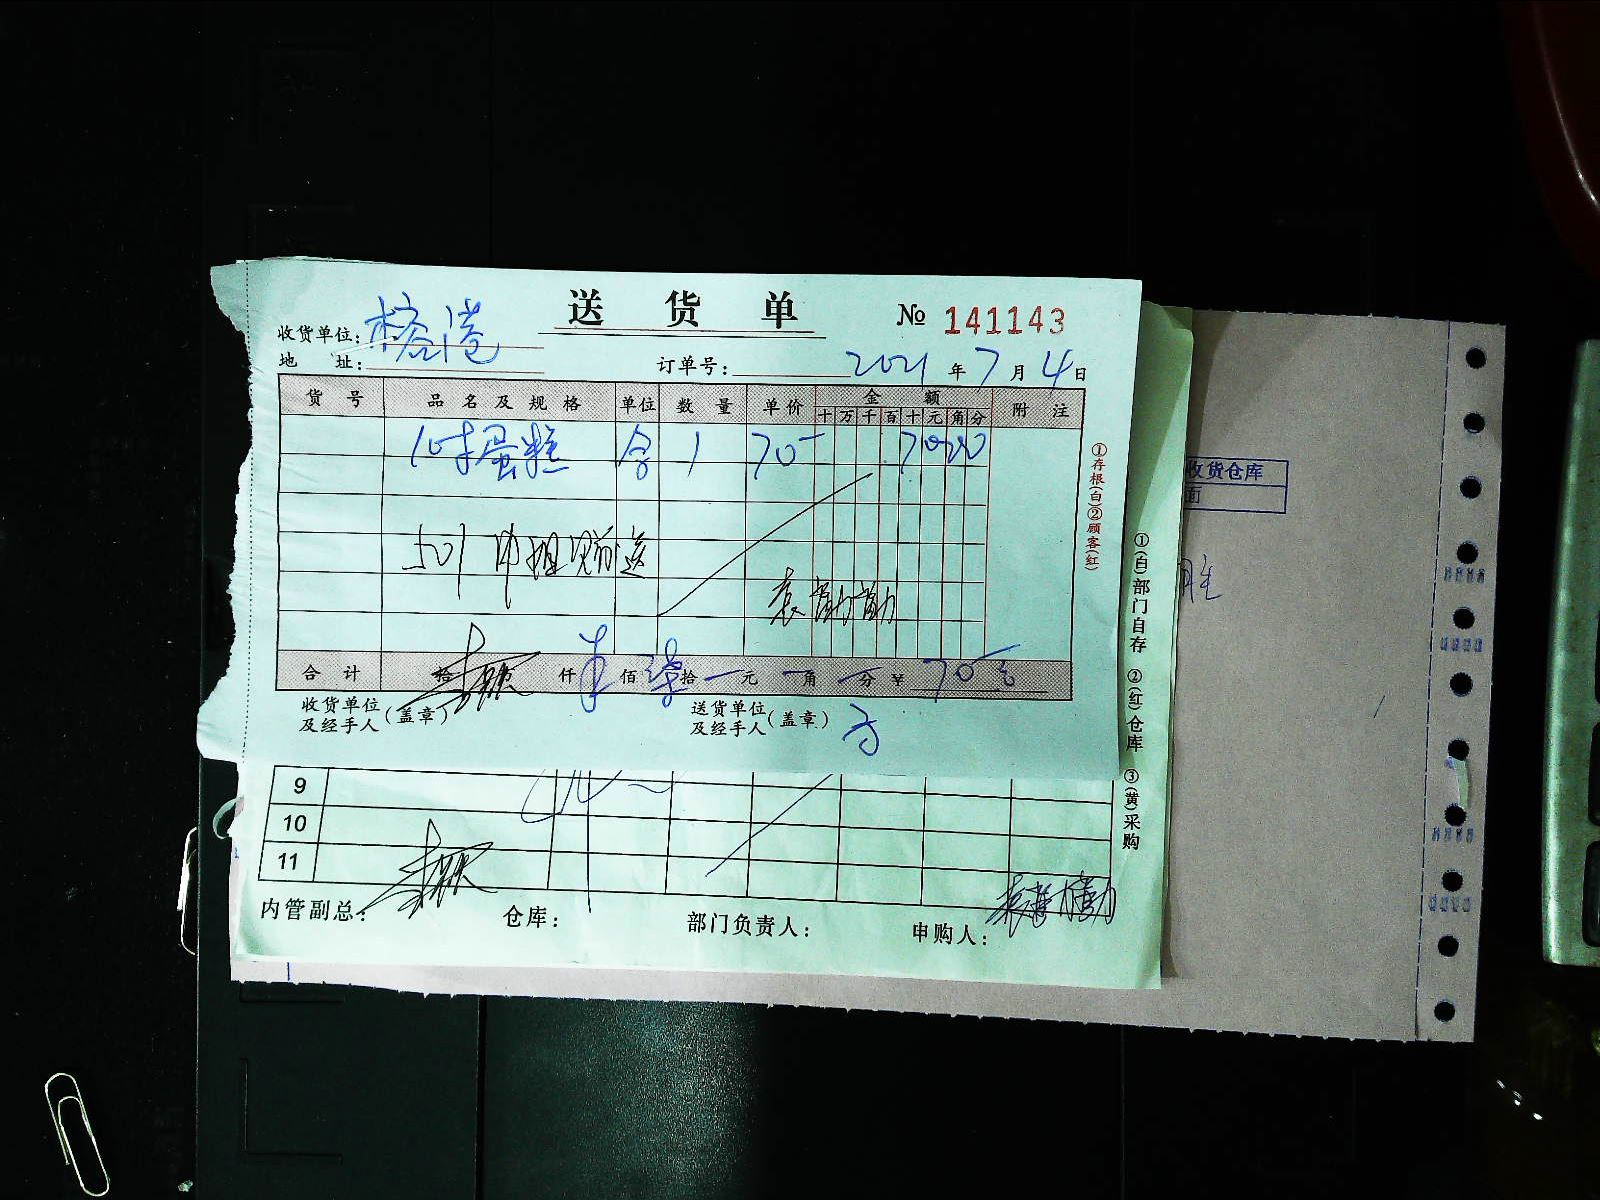 送货单 № 141143
收货单位: 榕港
地 址: 订单号: 2021 年 7 月 4 日
货号 品名及规格 单位 数量 单价 金额 附注
十 万 千 百 十 元 角 分
10寸蛋糕 合 1 70- 7000
501
合计 拾 仟 佰 柒拾 元 角 分 ¥ 70-
收货单位及经手人(盖章) 送货单位及经手人(盖章)
①存根(白)②顾客(红)
9
10
11
内管副总: 仓库: 部门负责人: 申购人:
①(白)部门自存 ②(红)仓库 ③(黄)采购
收货仓库
面